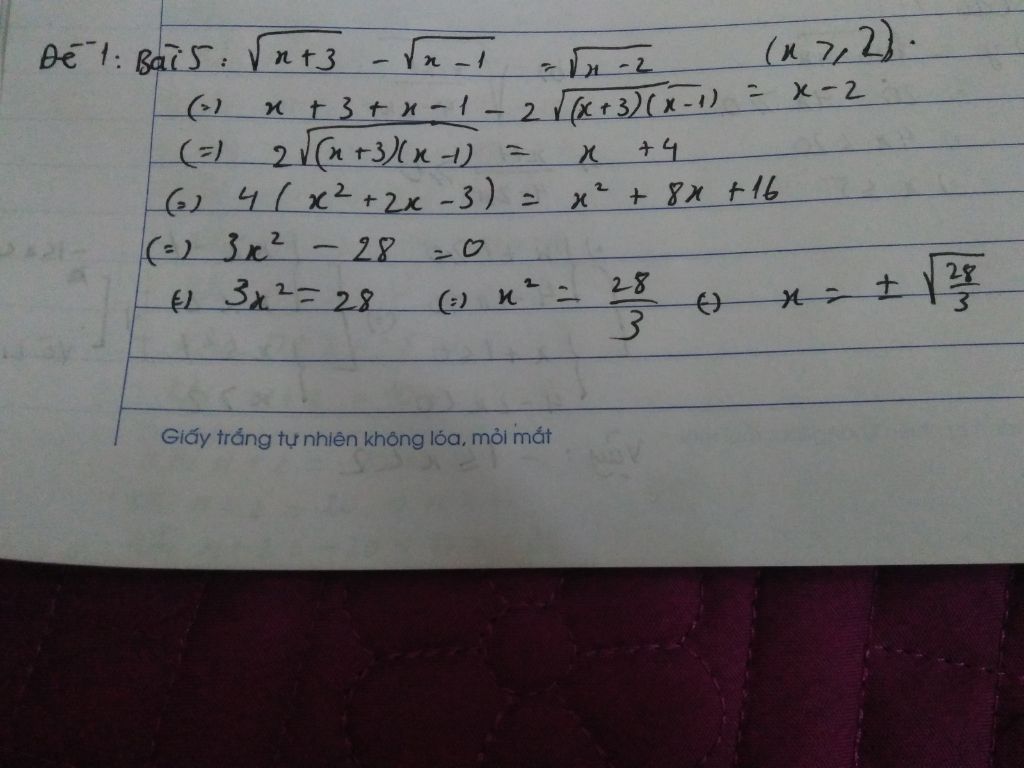 Đề 1: Bài 5: √(x+3) - √(x-1) = √(x-2) (x ≥ 2).
(=) x + 3 + x - 1 - 2√((x+3)(x-1)) = x - 2
(=) 2√((x+3)(x-1)) = x + 4
(=) 4(x² + 2x - 3) = x² + 8x + 16
(=) 3x² - 28 = 0
(=) 3x² = 28 (=) x² = 28/3 (=) x = ± √(28/3)
Giấy trắng tự nhiên không lóa, mỏi mắt